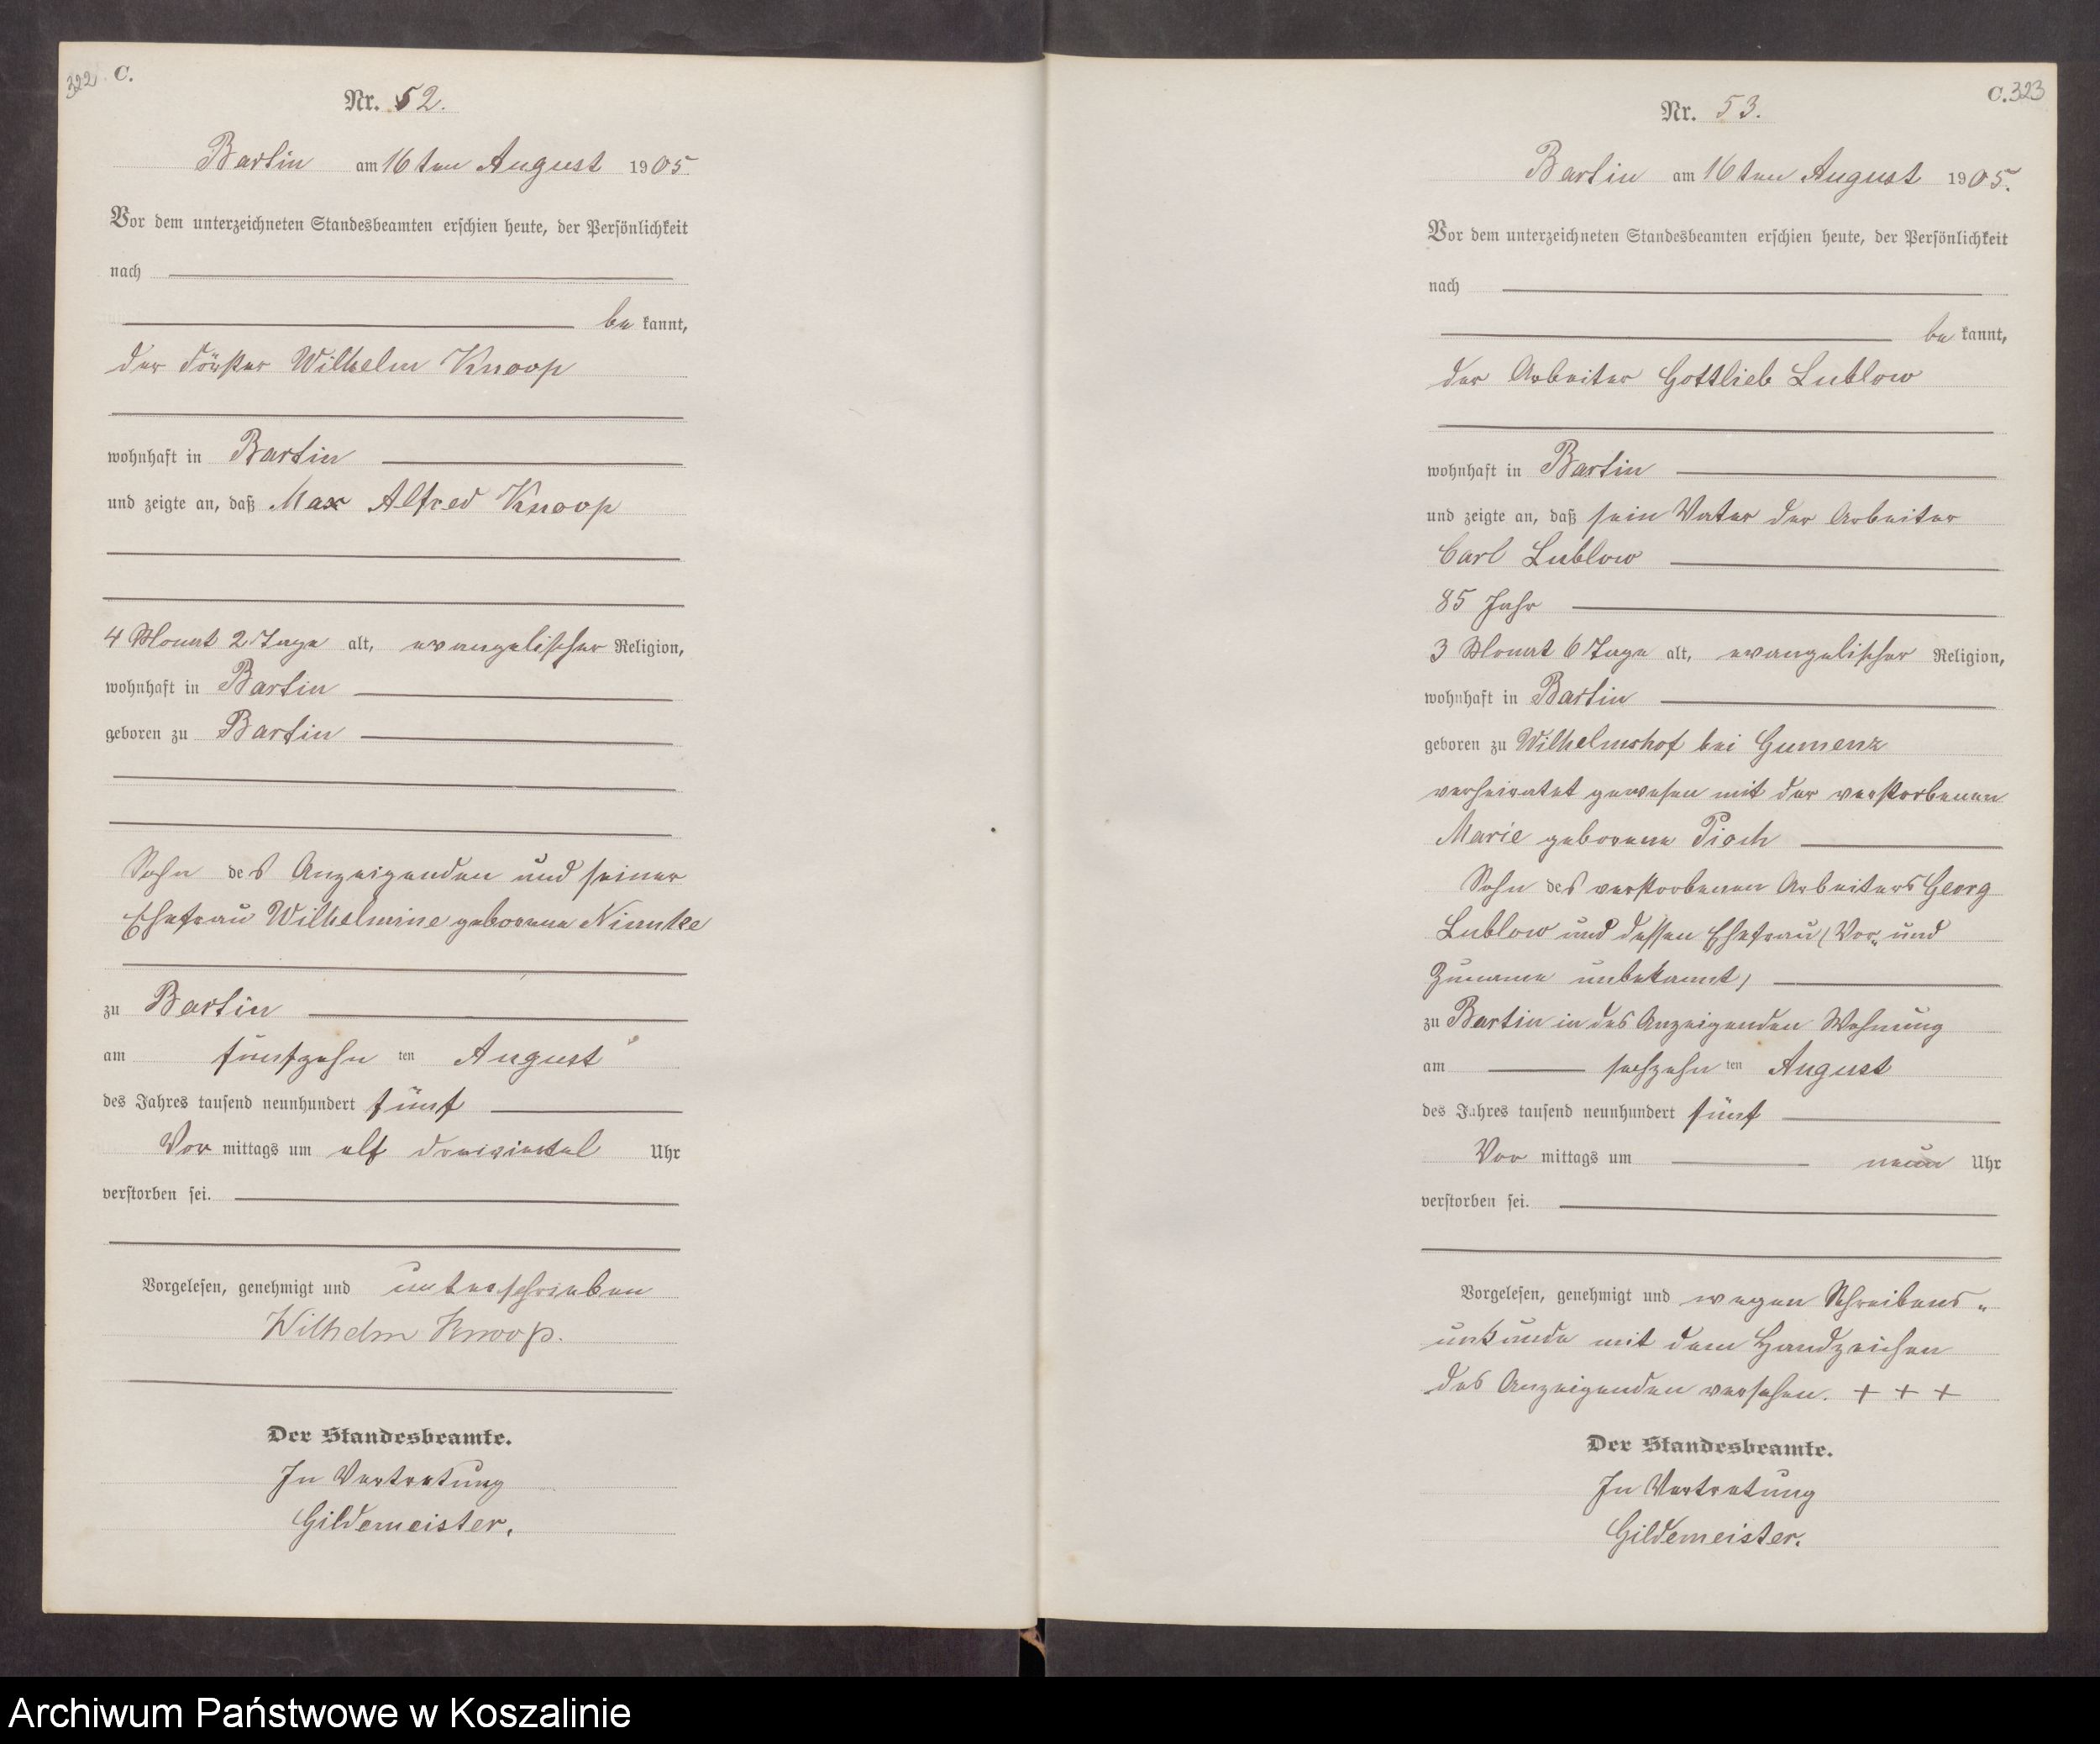 322 C.
Nr. 52.
Bartin am 16ten August 1905
Vor dem unterzeichneten Standesbeamten erschien heute, der Persönlichkeit
nach
be kannt,
der Förster Wilhelm Knoop
wohnhaft in Bartin
und zeigte an, daß Max Alfred Knoop
4 Monat 2 Tage alt, evangelischer Religion,
wohnhaft in Bartin
geboren zu Bartin
Sohn des Anzeigenden und seiner
Ehefrau Wilhelmine geborene
zu Bartin
am fünfzehn ten August
des Jahres tausend neunhundert fünf
Vor mittags um elf dreiviertel Uhr
verstorben sei.
Vorgelesen, genehmigt und unterschrieben
Wilhelm Knoop.
Der Standesbeamte.
In Vertretung
Gildemeister.
C. 323
Nr. 53.
Bartin am 16ten August 1905.
Vor dem unterzeichneten Standesbeamten erschien heute, der Persönlichkeit
nach
be kannt,
der Arbeiter Gottlieb Lublow
wohnhaft in Bartin
und zeigte an, daß sein Vater der Arbeiter
Carl Lublow
85 Jahr
3 Monat 6 Tage alt, evangelischer Religion,
wohnhaft in Bartin
geboren zu Wilhelmshof bei Gumenz
verheiratet gewesen mit der verstorbenen
Marie geborene Pioch
Sohn des verstorbenen Arbeiters Georg
Lublow und dessen Ehefrau (Vor- und
Zuname unbekannt)
zu Bartin in des Anzeigenden Wohnung
am sechzehn ten August
des Jahres tausend neunhundert fünf
Vor mittags um neun Uhr
verstorben sei.
Vorgelesen, genehmigt und wegen Schreibens-
unkunde mit dem Handzeichen
des Anzeigenden versehen. + + +
Der Standesbeamte.
In Vertretung
Gildemeister.
Archiwum Państwowe w Koszalinie